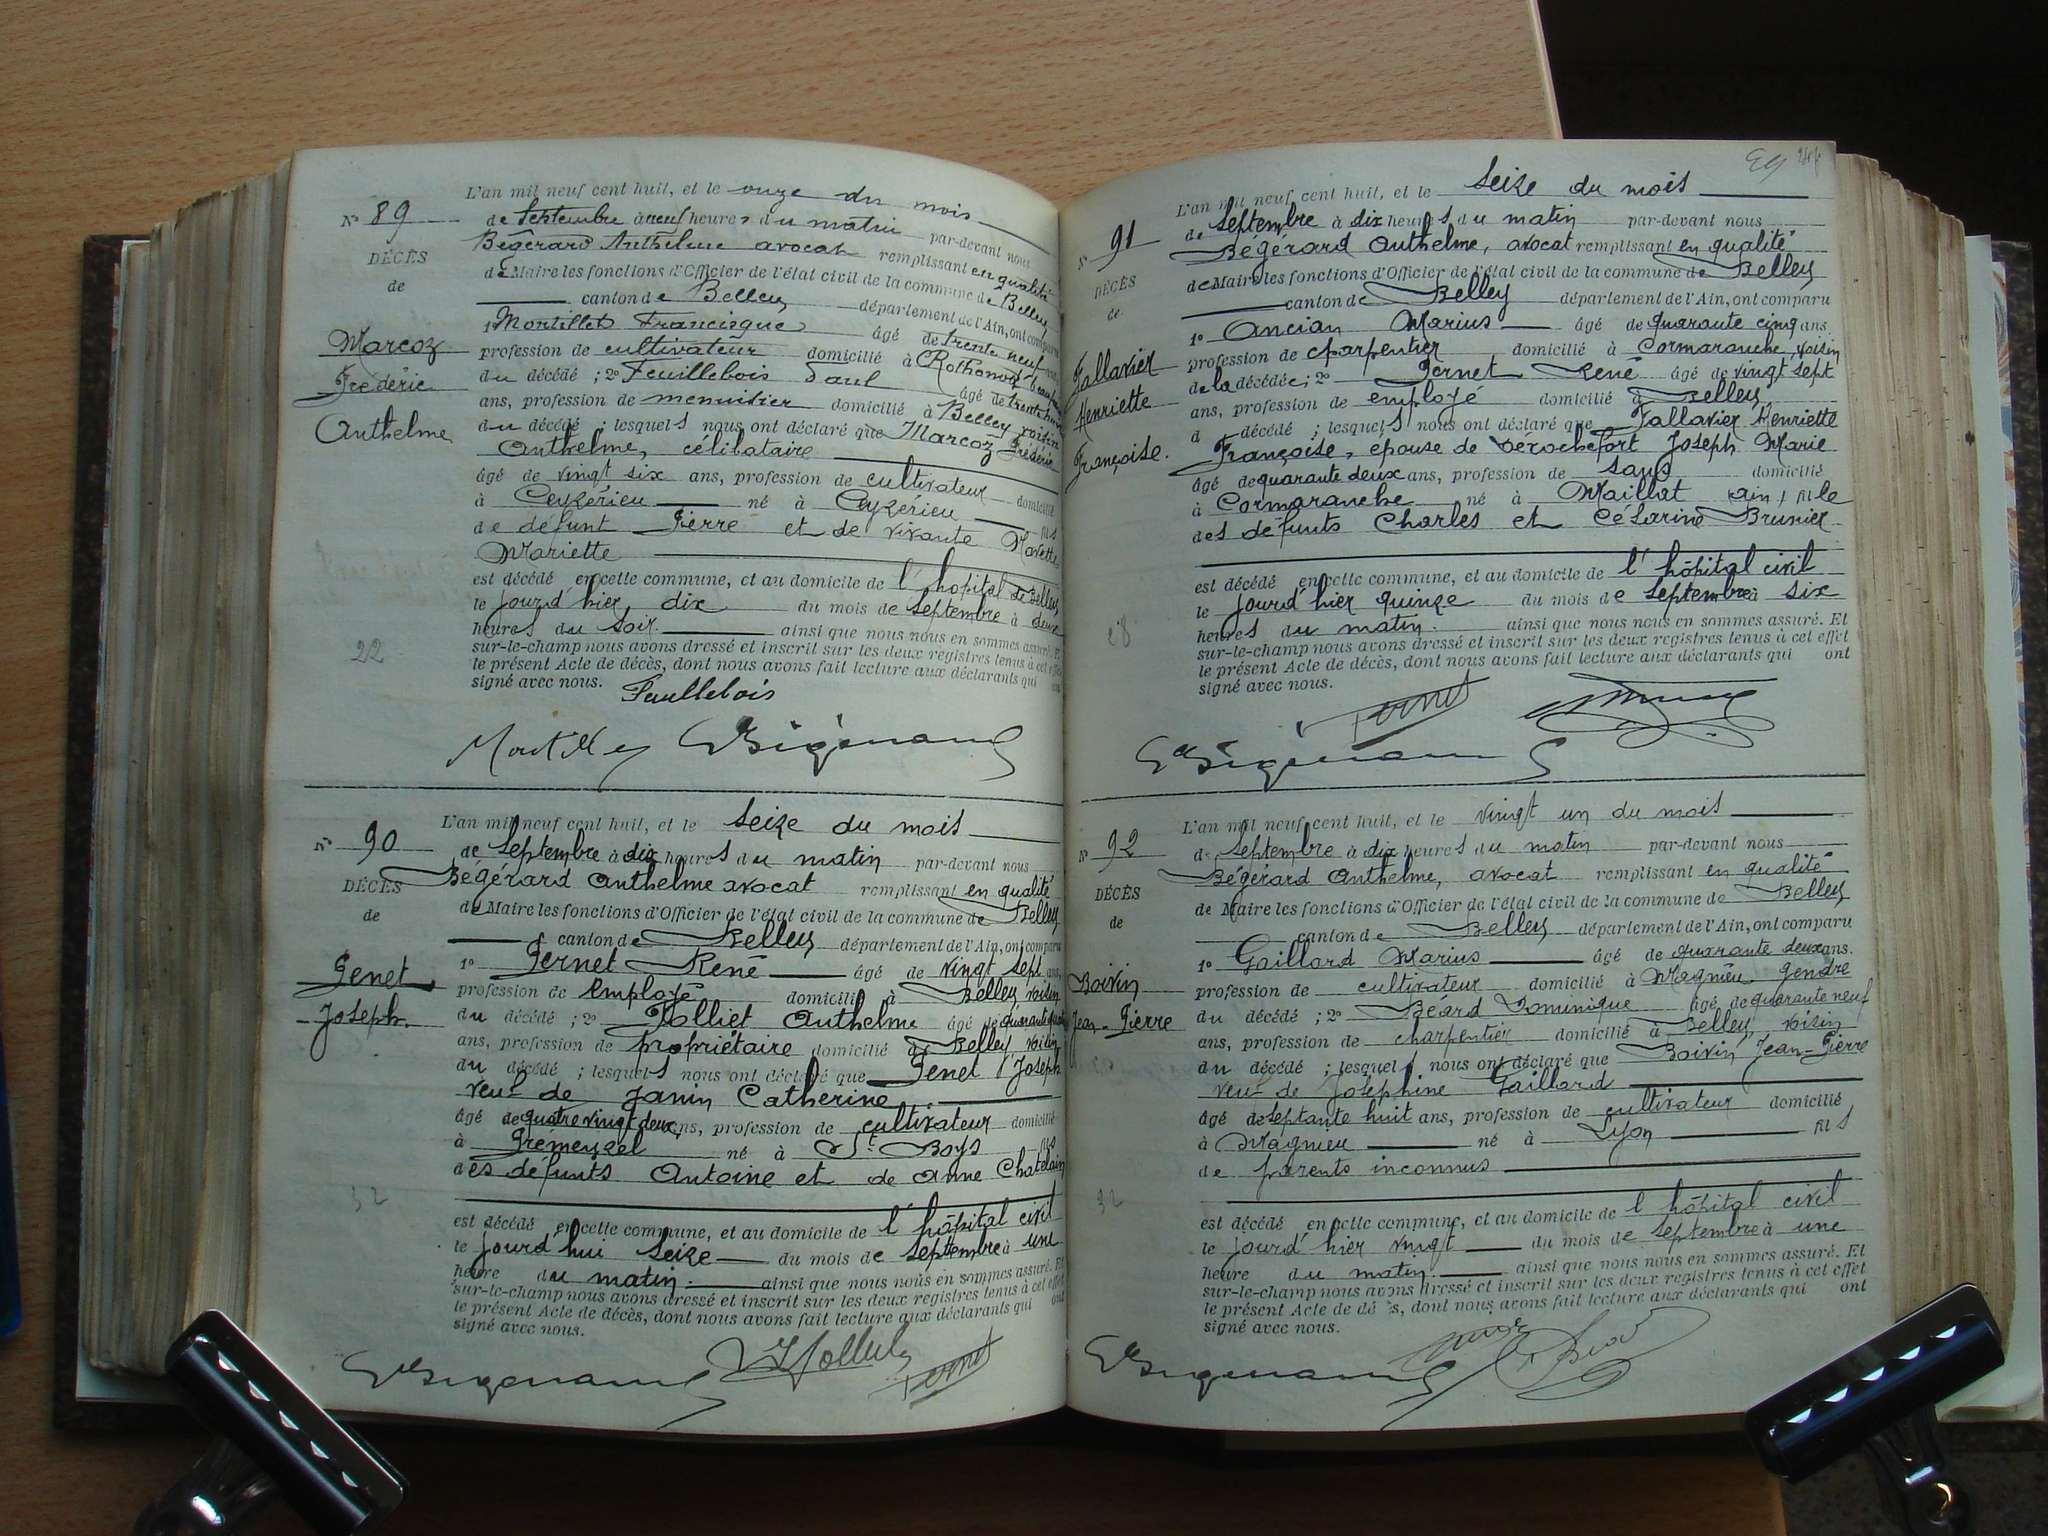 N° 89
DÉCÈS
de
Marcoz
Frédéric
Anthelme
L'an mil neuf cent huit, et le onze du mois
de Septembre à neuf heures du matin par-devant nous
Bégérard Anthelme avocat remplissant en qualité
de Maire les fonctions d'Officier de l'état civil de la commune de Belley
canton de Belley département de l'Ain, ont comparu
1° Montillet Francisque âgé de trente neuf ans,
profession de cultivateur domicilié à Rothonod
du décédé ; 2° Feuillebois Paul âgé de trente
ans, profession de menuisier domicilié à Belley voisin
du décédé ; lesquels nous ont déclaré que Marcoz Frédéric
Anthelme, célibataire
âgé de vingt six ans, profession de cultivateur domicilié
à Ceyzérieu né à Ceyzérieu fils
de défunt Pierre et de vivante
Mariette
est décédé en cette commune, et au domicile de l'hopital de Belley
le jourd'hier, dix du mois de Septembre à deux
heures du soir. ainsi que nous nous en sommes assuré. Et
sur-le-champ nous avons dressé et inscrit sur les deux registres tenus à cet effet
le présent Acte de décès, dont nous avons fait lecture aux déclarants qui ont
signé avec nous.
22
N° 90
DÉCÈS
de
Genet
Joseph.
L'an mil neuf cent huit, et le seize du mois
de septembre à dix heures du matin par-devant nous
Bégérard Anthelme avocat remplissant en qualité
de Maire les fonctions d'Officier de l'état civil de la commune de Belley
canton de Belley département de l'Ain, ont comparu
1° Pernet René âgé de vingt sept ans,
profession de employé domicilié à Belley, voisin
du décédé ; 2° Holliet Anthelme âgé de quarante
ans, profession de propriétaire domicilié à Belley voisin
du décédé ; lesquels nous ont déclaré que Genet Joseph
veuf de Janin Catherine
âgé de quatre vingt deux ans, profession de cultivateur domicilié
à Prémeyzel né à St Boys fils
des défunts Antoine et de Anne Chatelain
est décédé en cette commune, et au domicile de l'hôpital civil
le jourd'hui seize du mois de septembre à une
heure du matin. ainsi que nous nous en sommes assuré. Et
sur-le-champ nous avons dressé et inscrit sur les deux registres tenus à cet effet
le présent Acte de décès, dont nous avons fait lecture aux déclarants qui ont
signé avec nous.
32
N° 91
DÉCÈS
de
Fallavier
Henriette
Françoise.
L'an mil neuf cent huit, et le seize du mois
de septembre à dix heures du matin par-devant nous
Bégérard Anthelme, avocat remplissant en qualité
de Maire les fonctions d'Officier de l'état civil de la commune de Belley
canton de Belley département de l'Ain, ont comparu
1° Ancian Marius âgé de quarante cinq ans
profession de charpentier domicilié à Cormaranche, voisin
de la décédée ; 2° Pernet René âgé de vingt sept
ans, profession de employé domicilié à Belley
d décédé ; lesquels nous ont déclaré que Fallavier Henriette
Françoise, épouse de Derochefort Joseph Marie
âgé de quarante deux ans, profession de sans domicilié
à Cormaranche né à Maillat Ain, fille
des défunts Charles et Césarine Brunier
est décédé en cette commune, et au domicile de l'hôpital civil
le jourd'hier quinze du mois de septembre à six
heures du matin. ainsi que nous nous en sommes assuré. Et
sur-le-champ nous avons dressé et inscrit sur les deux registres tenus à cet effet
le présent Acte de décès, dont nous avons fait lecture aux déclarants qui ont
signé avec nous.
Pernet
N° 92
DÉCÈS
de
Boivin
Jean-Pierre
L'an mil neuf cent huit, et le vingt un du mois
de septembre à dix heures du matin par-devant nous
Bégérard Anthelme, avocat remplissant en qualité
de Maire les fonctions d'Officier de l'état civil de la commune de Belley
canton de Belley département de l'Ain, ont comparu
1° Gaillard Marius âgé de quarante deux ans.
profession de cultivateur domicilié à Magnieu gendre
du décédé ; 2° Béard Dominique âgé de quarante neuf
ans, profession de charpentier domicilié à Belley, voisin
du décédé ; lesquels nous ont déclaré que Boivin Jean-Pierre
veuf de Joséphine Gaillard
âgé de septante huit ans, profession de cultivateur domicilié
à Magnieu né à Lyon fils
de parents inconnus
est décédé en cette commune, et au domicile de l'hôpital civil
le jourd'hier vingt du mois de septembre à une
heure du matin. ainsi que nous nous en sommes assuré. Et
sur-le-champ nous avons dressé et inscrit sur les deux registres tenus à cet effet
le présent Acte de décès, dont nous avons fait lecture aux déclarants qui ont
signé avec nous.